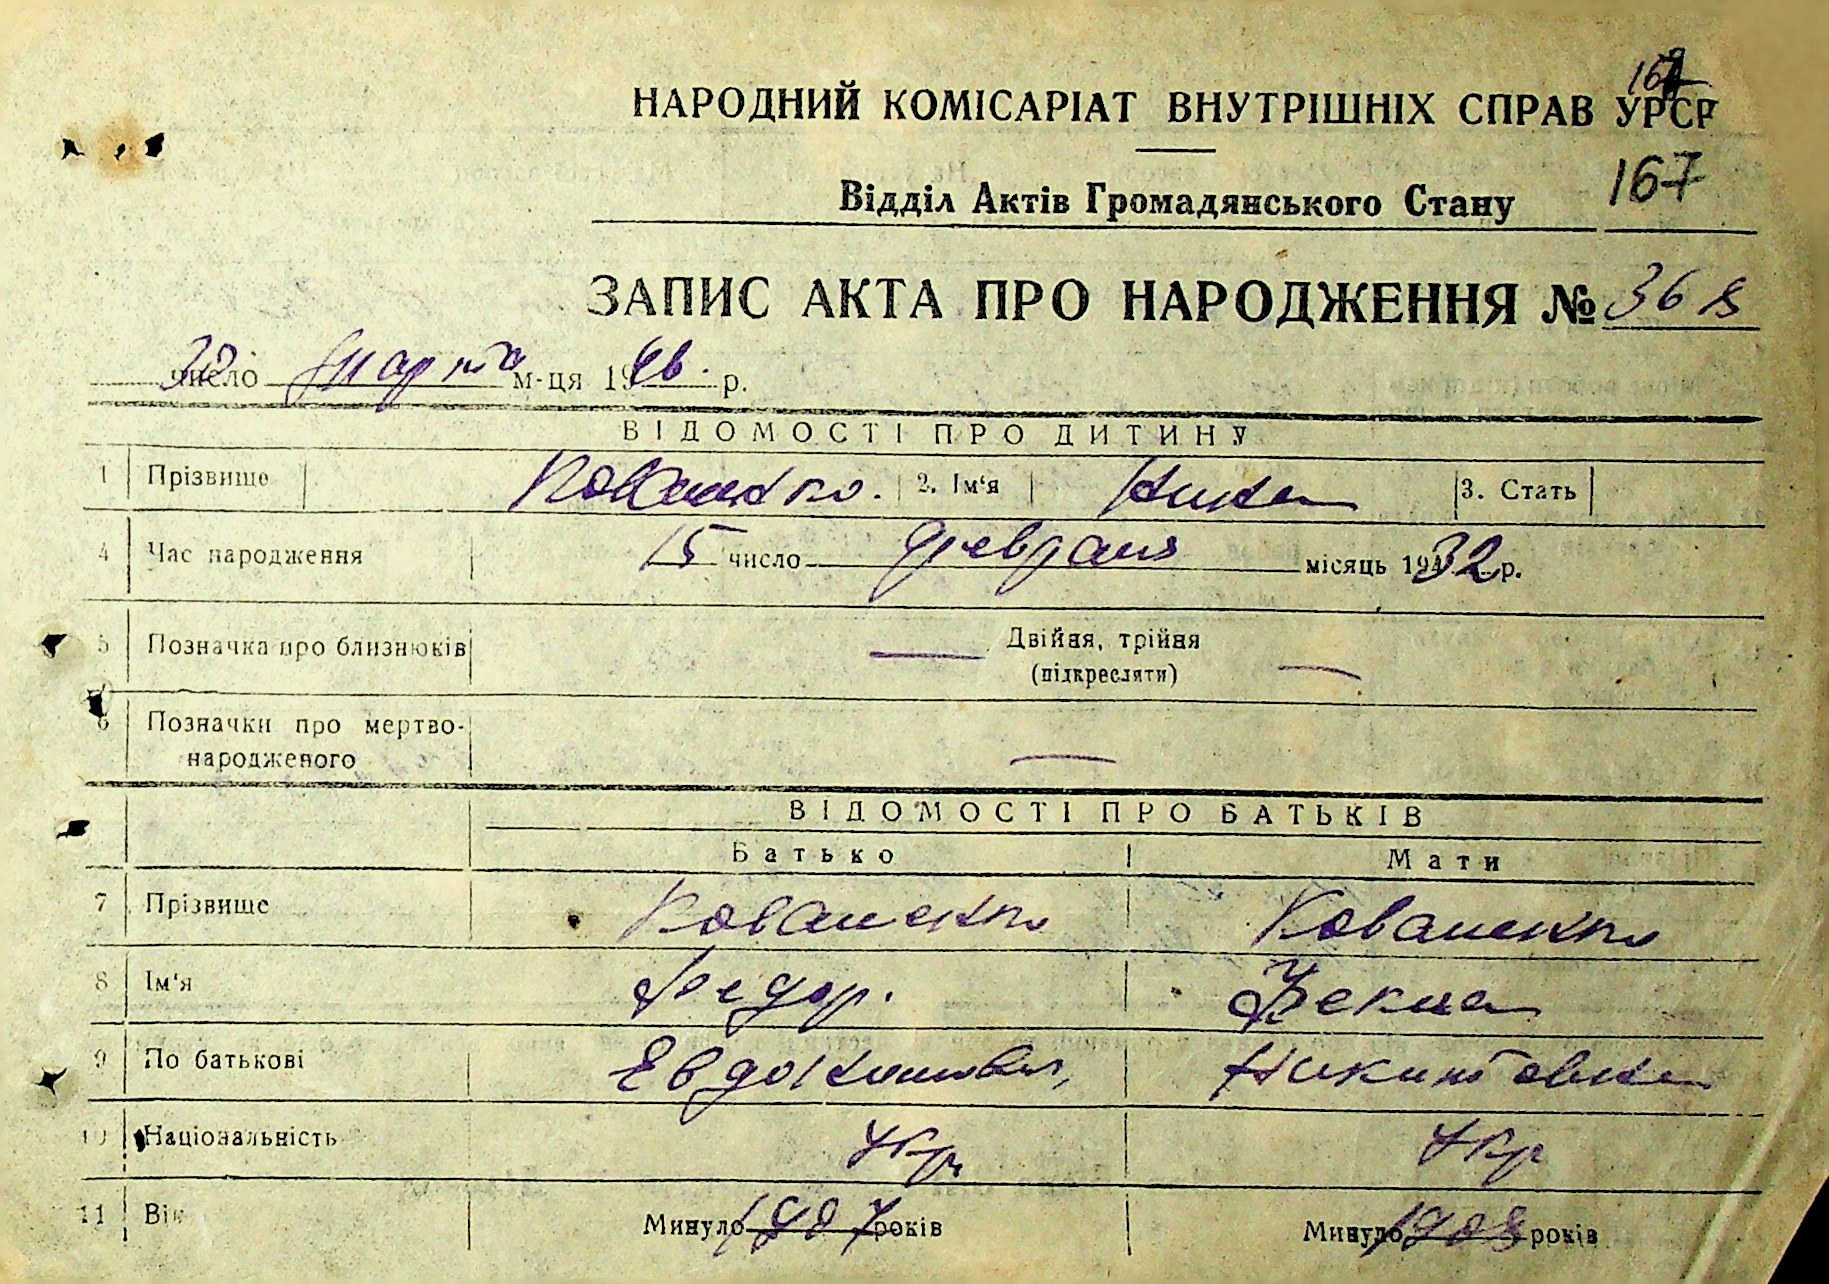 НАРОДНИЙ КОМІСАРІАТ ВНУТРІШНІХ СПРАВ УРСР
167
Відділ Актів Громадянського Стану
ЗАПИС АКТА ПРО НАРОДЖЕННЯ № 368
30 число марта м-ця 1946. р.
ВІДОМОСТІ ПРО ДИТИНУ
1 Прізвище 2. Ім'я Нина 3. Стать
4 Час народження 15 число февраля місяць 1932 р.
5 Позначка про близнюків — Двійня, трійня —
(підкресляти)
6 Позначки про мертво-
народженого —
ВІДОМОСТІ ПРО БАТЬКІВ
Батько Мати
7 Прізвище Коваленко Коваленко
8 Ім'я Федор. Фекла
9 По батькові Евдокимович Никитовна
10 Національність Укр Укр
11 Вік Минуло 1907 років Минуло 1908 років